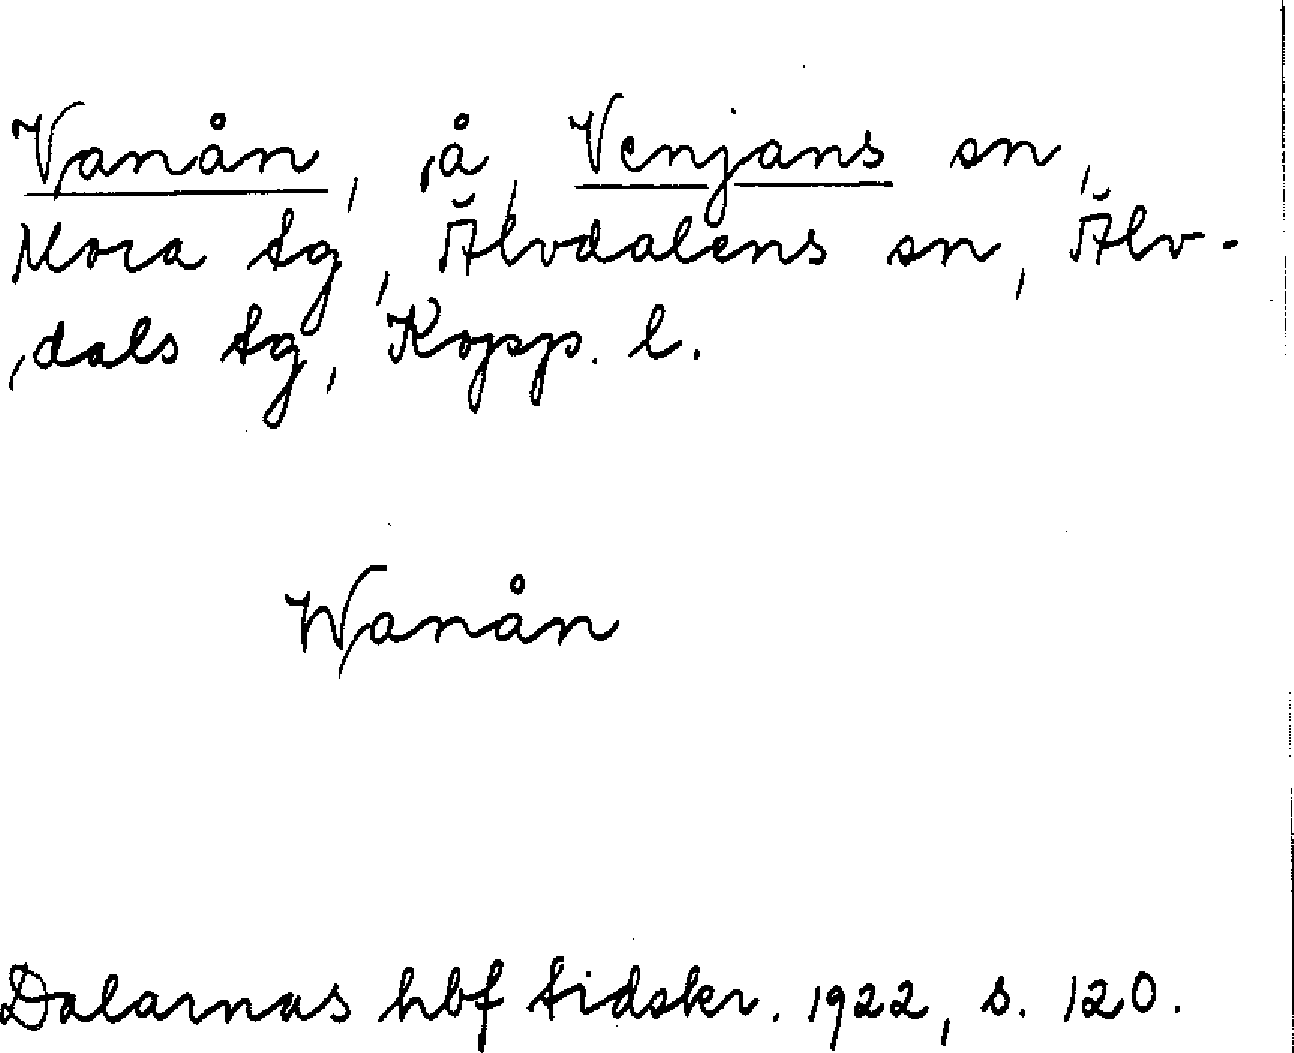 Vanån, å, Venjans sn,
Mora tg, Älvdalens sn, Älv-
dals tg, Kopp. l.
Wanån
Dalarnas hbf tidskr. 1922, s. 120.